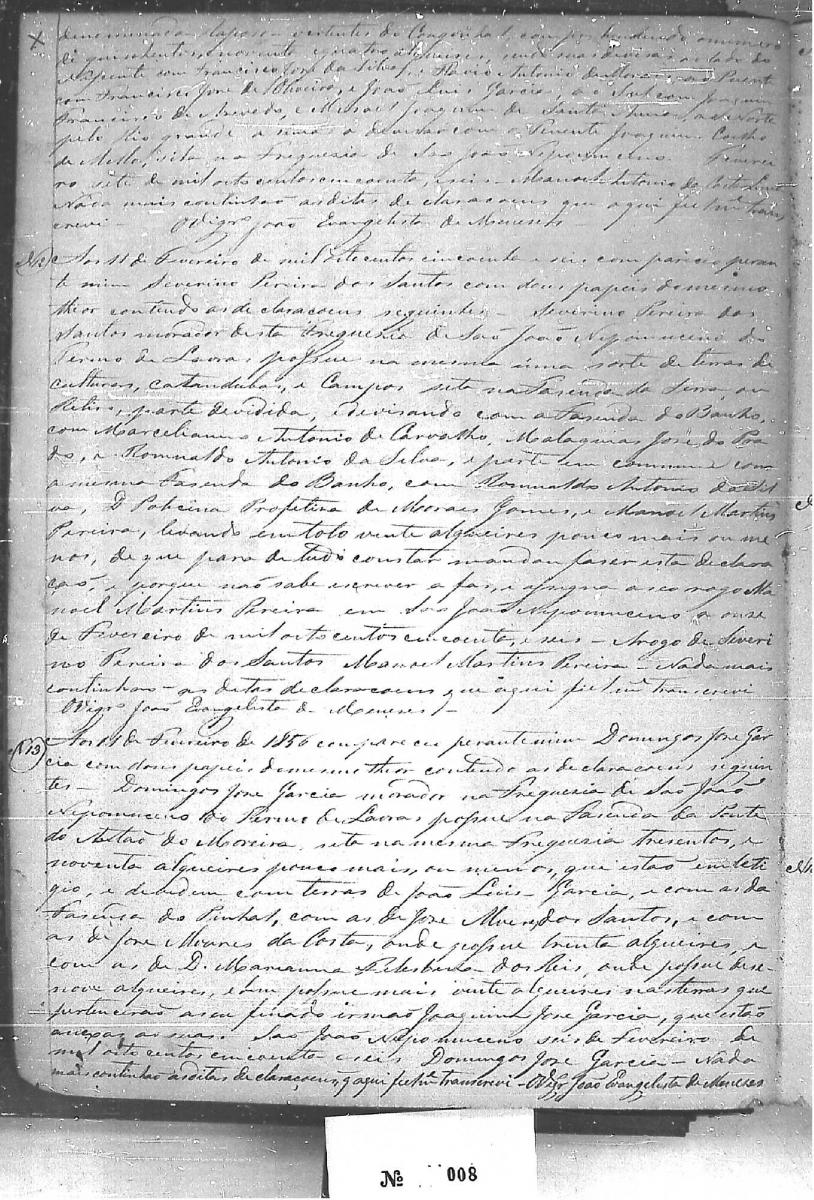 X
denominada vertentes do Congonhal, comprehendendo o numero
de quinhentos, e noventa e quatro alqueires, sendo suas devisas ao lado do
Naçente com Francisco Jose da Silva, e Flavio Antonio de Moraes, ao Puente
com Francisco Jose de Oliveira, e João Luis Garcia, ao Sul com Joaquim
Francisco de Azevedo, e Moraes Joaquim de Santa Anna, ao Norte
pelo Rio grande a devisão com o Tenente Joaquim Coelho
de Mello, sita na Freguezia de São João Nepomuceno Feverei
ro sete de mil oito centos e cincoenta, e seis - Manoel Antonio da Costa
Nada mais continhão as ditas declaracoens que aqui fielm.e trans
crevi - O Vigr.o João Evangelista de Meneses -
N12 Aos 11 de Fevereiro de mil oito centos e cincoenta e seis compareceo peran
te mim Severino Pereira dos Santos com dous papeis do mesmo
theor contendo as declaracoens seguintes - Severino Pereira dos
Santos morador desta Freguezia de São João Nepomuceno do
Termo de Lavras possue na mesma uma sorte de terras de
culturas, catandubas, e Campos, sita na Fasenda da Serra, ou
Retiro, parte devidida, e devisando com a Fasenda do Banho,
com Marcelianno Antonio de Carvalho, Malaquias José do Pra
do, e Romualdo Antonio da Silva, e parte em commum com
a mesma Fasenda do Banho, com Romualdo Antonio da Sil
va, D Policena Profetira de Moraes Gomes, e Manoel Martins
Pereira, levando em todo vinte alqueires pouco mais ou me
nos, de que para de tudo constar mandou faser esta declara
ção, e porque não sabe escrever a fas, e assigna a seo rogo Ma
noel Martins Pereira em São João Nepomuceno a onze
de Fevereiro de mil oito centos e cincoenta, e seis - Arogo de Severi
no Pereira dos Santos Manoel Martins Pereira - Nada mais
continhão - as ditas declaracoens que aqui fielm.e transcrevi
O Vigr.o João Evangelista de Meneses -
N13 Aos 11 de Fevereiro de 1856 compareceu perante mim Domingos Jose Gar
cia com dous papeis do mesmo theor contendo as declaracoens seguin
tes - Domingos Jose Garcia morador na Freguezia de São João
Nepomuceno do Termo de Lavras possue na Fasenda da Ponte
do Moreira, sita na mesma Freguezia tresentos, e
noventa alqueires pouco mais, ou menos, que estão em leti
gio, e devidem com terras de João Luis Garcia, e com as da
Fasenda do Pinhal, com as de Jose Alves dos Santos, e com
as de Jose Moares da Costa, onde possue trinta alqueires, e
com as de D. Marianna dos Reis, onde possue dese
nove alqueires, e possue mais vinte alqueires nas terras que
pertencerão a seu finado irmão Joaquim Jose Garcia, que estão
anexas as suas. São João Nepomuceno seis de Fevereiro de
mil oito centos e cincoenta e seis Domingos Jose Garcia - Nada
mais continhão as ditas declaracoens, q aqui fielm.e transcrevi - O Vigr.o João Evangelista de Meneses
No 008